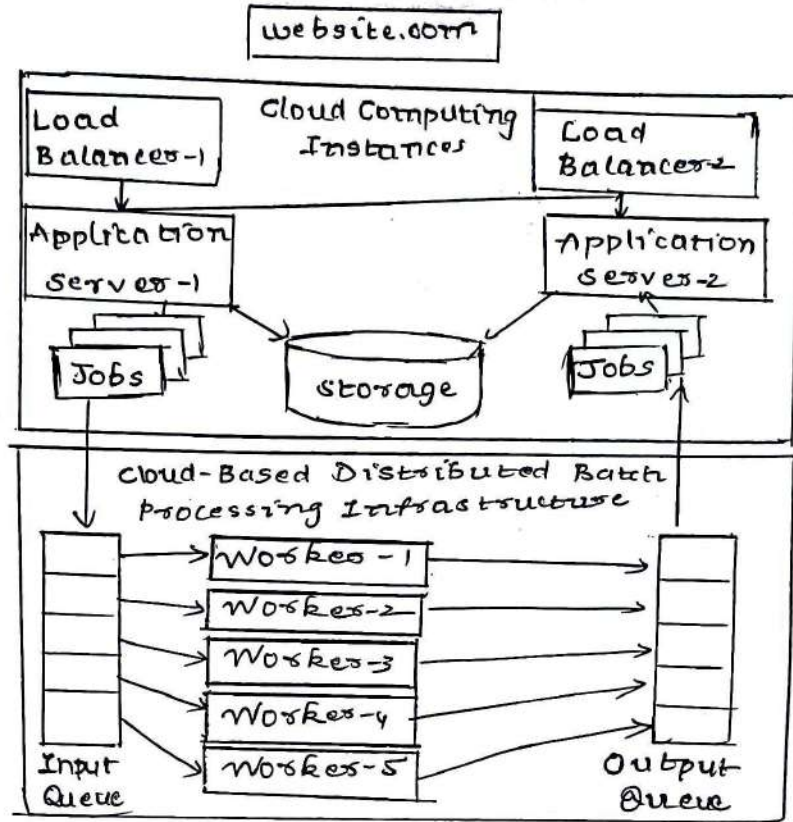 website.com
Load
Balancer-1
Cloud Computing
Instances
Load
Balancer-2
Application
Server-1
Application
Server-2
Jobs
Storage
Jobs
Cloud-Based Distributed Batch
Processing Infrastructure
Worker-1
Worker-2
Worker-3
Worker-4
Worker-5
Input
Queue
Output
Queue